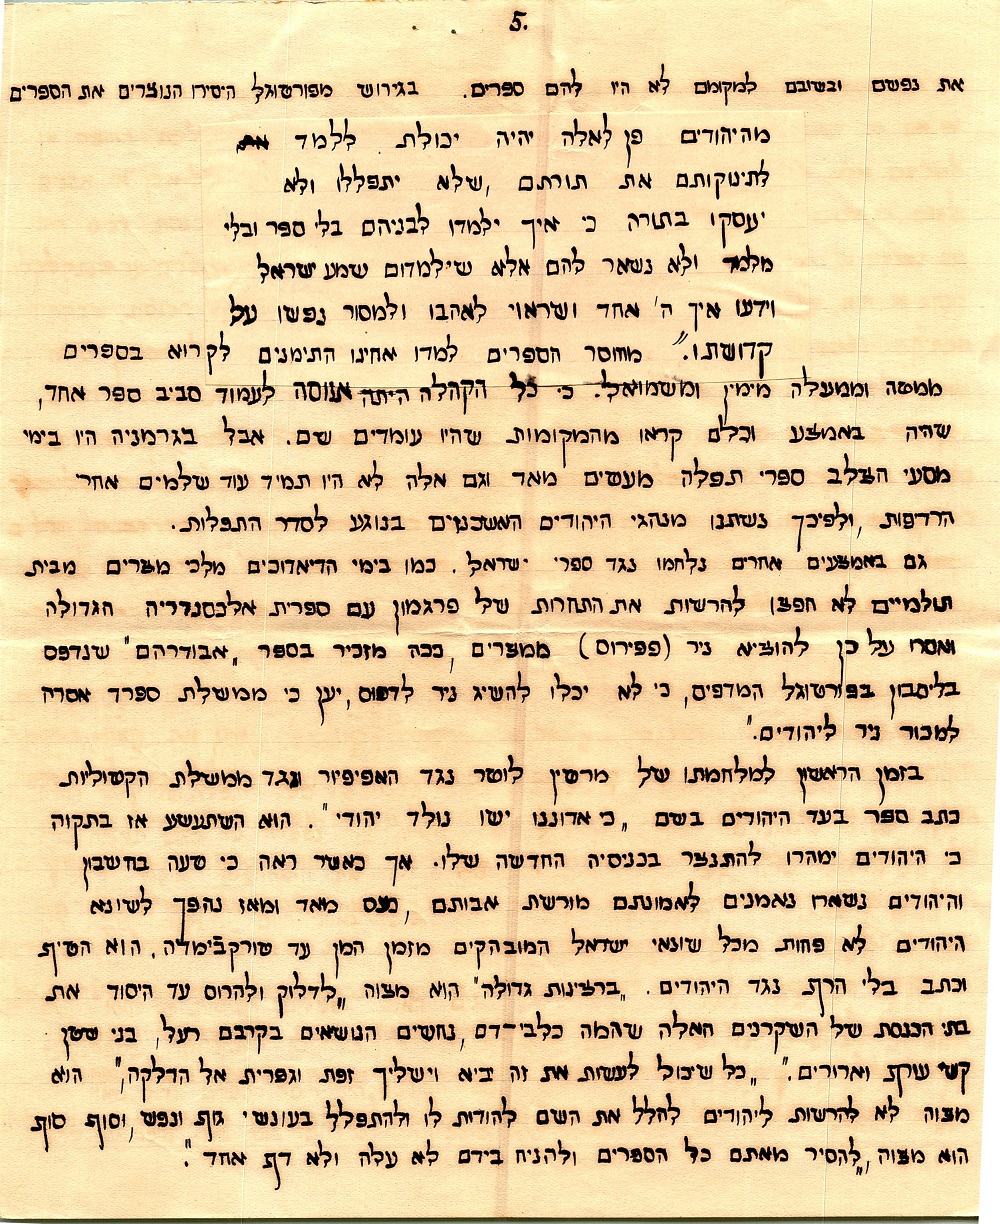 5.
את נפשם ובשובם למקומם לא היו להם ספרים. בגירוש מפורטוגל היסירו הנוצרים את הספרים
מהיהודים פן לאלה יהיה יכולת ללמד את
לתינוקותם את תורתם, שלא יתפללו ולא
יעסקו בתורה כי איך ילמדו לבניהם בלי ספר ובלי
מלמד ולא נשאר להם אלא שילמדום שמע ישראל
וידעו איך ה' אחד ושראוי לאהבו ולמסור נפשו על
קדושתו." מחוסר הספרים למדו אחינו התימנים לקרוא בספרים
ממטה וממעלה מימין ומשמואל. כי כל הקהלה היתה אנוסה לעמוד סביב ספר אחד,
שהיה באמצע וכלם קראו מהמקומות שהיו עומדים שם. אבל בגרמניה היו בימי
מסעי הצלב ספרי תפלה מעטים מאד וגם אלה לא היו תמיד עוד שלמים אחר
הרדפות, ולפיכך נשתנו מנהגי היהודים האשכנזים בנוגע לסדר התפלות.
גם באמצעים אחרים נלחמו נגד ספרי ישראל. כמו בימי הדיאדוכים מלכי מצרים מבית
תולמיים לא חפצו להרשות את התחרות של פרגמון עם ספרית אלכסנדריה הגדולה
ואסרו על כן להוציא ניר (פפירוס) ממצרים, ככה מזכיר בספר "אבודרהם" שנדפס
בליסבון בפורטוגל המדפיס, כי לא יכלו להשיג ניר לדפוס, יען כי ממשלת ספרד אסרה
למכור ניר ליהודים."
בזמן הראשון למלחמתו של מרטין לוטר נגד האפיפיור ונגד ממשלת הקטוליות
כתב ספר בעד היהודים בשם "כי אדוננו ישו נולד יהודי". הוא השתעשע אז בתקוה
כי היהודים ימהרו להתנצר בכניסיה החדשה שלו. אך כאשר ראה כי טעה בחשבון
והיהודים נשארו נאמנים לאמונתם מורשת אבותם, כעס מאד ומאז נהפך לשונא
היהודים לא פחות מכל שונאי ישראל המובהקים מזמן המן עד טורקבימדה. הוא הטיף
וכתב בלי הרף נגד היהודים. "ברצינות גדולה" הוא מצוה "לדלוק ולהרוס עד היסוד את
בתי הכנסת של השקרנים האלה שהמה כלבי-דם, נחשים הנושאים בקרבם רעל, בני שטן
קשי עורף וארורים." "כל שיכול לעשות את זה יביא וישליך זפת וגפרית אל הדלקה," הוא
מצוה לא להרשות ליהודים לחלל את השם להודות לו ולהתפלל בעונשי גוף ונפש, וסוף סוף
הוא מצוה, "להסיר מאתם כל הספרים ולהניח בידם לא עלה ולא דף אחד".